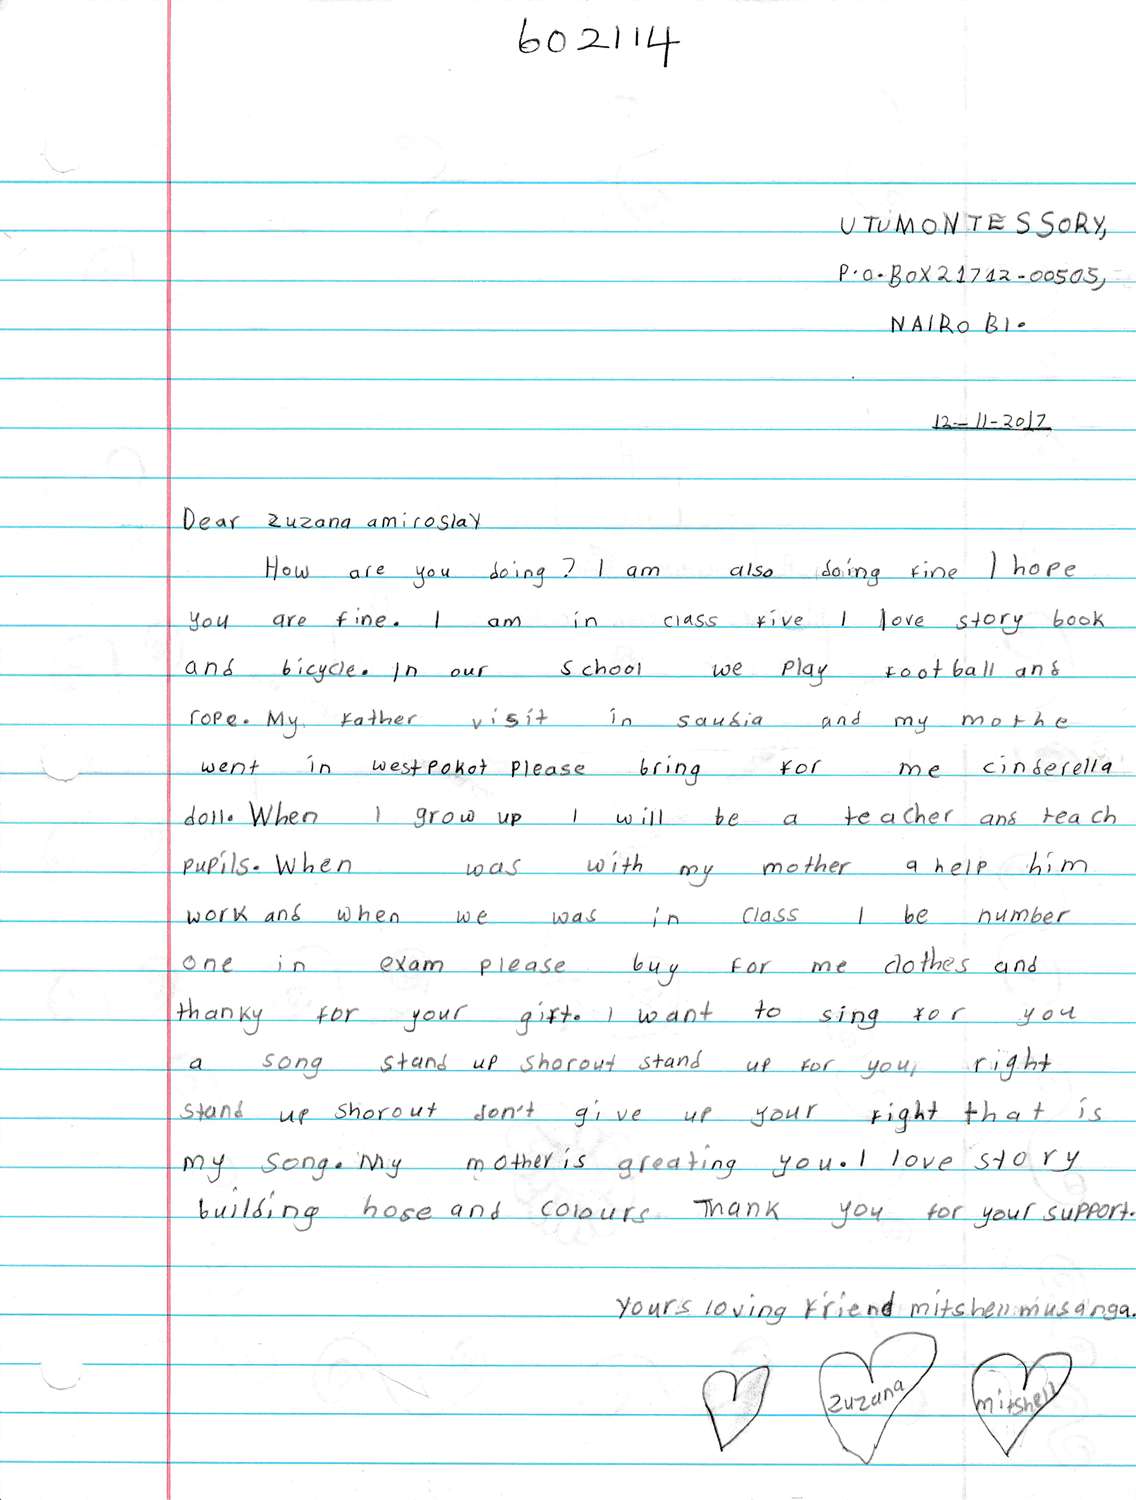 602114
UTUMONTESSORY,
P.O.BOX21712-00505,
NAIROBI.
12-11-2017
Dear zuzana amiroslay
How are you doing? I am also doing fine I hope
you are fine. I am in class five I love story book
and bicycle. In our school we play football and
rope. My father visit in saudia and my mothe
went in westpokot please bring for me cinderella
doll. When I grow up I will be a teacher and teach
pupils. When was with my mother a help him
work and when we was in class I be number
one in exam please buy for me clothes and
thanky for your gift. I want to sing for you
a song stand up shorout stand up for you, right
stand up shorout don't give up your right that is
my song. My mother is greating you. I love story
building hose and colours Thank you for your support.
yours loving friend mitshell musanga.
zuzana mitshell